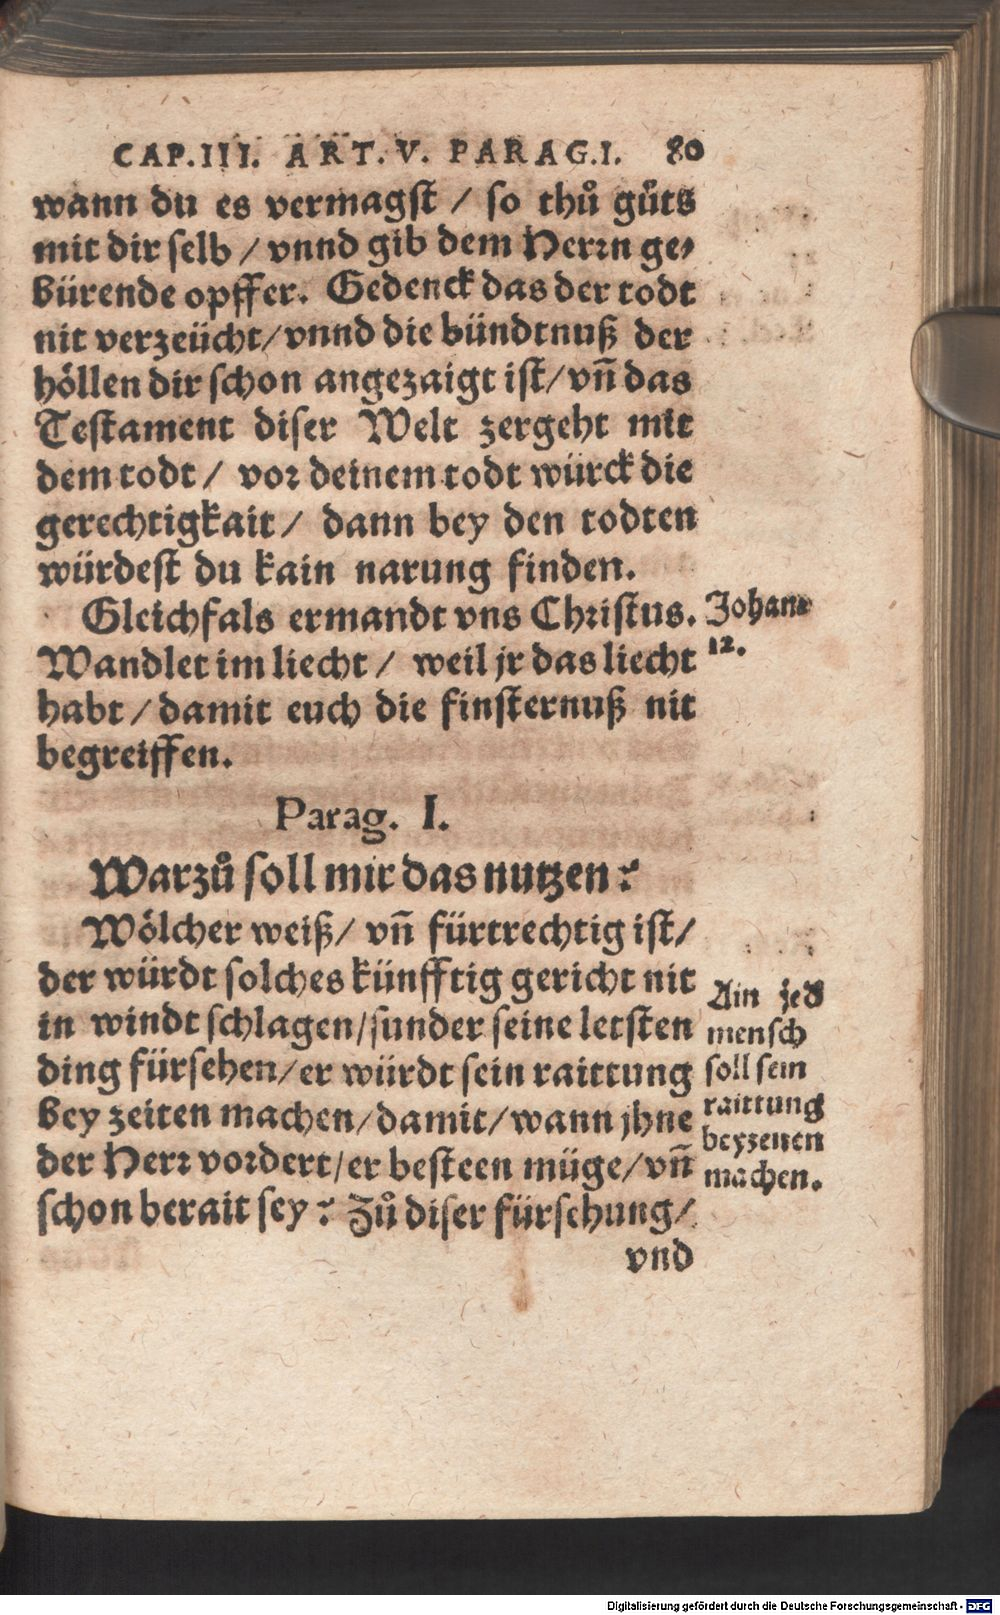 CAP.III. ART.V. PARAG.I. 80
wann du es vermagst / so thů gůts
mit dir selb / vnnd gib dem Herrn ge-
bürende opffer. Gedenck das der todt
nit verzeücht/vnnd die bündtnuß der
höllen dir schon angezaigt ist/vn̄ das
Testament diser Welt zergeht mit
dem todt / vor deinem todt würck die
gerechtigkait / dann bey den todten
würdest du kain narung finden.
Gleichfals ermandt vns Christus.
Wandlet im liecht / weil jr das liecht
habt / damit euch die finsternuß nit
begreiffen.
Johan.
12.
Parag. I.
Warzů soll mir das nutzen?
Wölcher weiß/ vn̄ fürtrechtig ist/
der würdt solches künfftig gericht nit
in windt schlagen/sunder seine letsten
ding fürsehen/er würdt sein raittung
bey zeiten machen/damit/wann jhne
der Herr vordert/er besteen müge/vn̄
schon berait sey? Zů diser fürsehung/
vnd
Ain jed
mensch
soll sein
raittung
bey zeiten
machen.
Digitalisierung gefördert durch die Deutsche Forschungsgemeinschaft - DFG